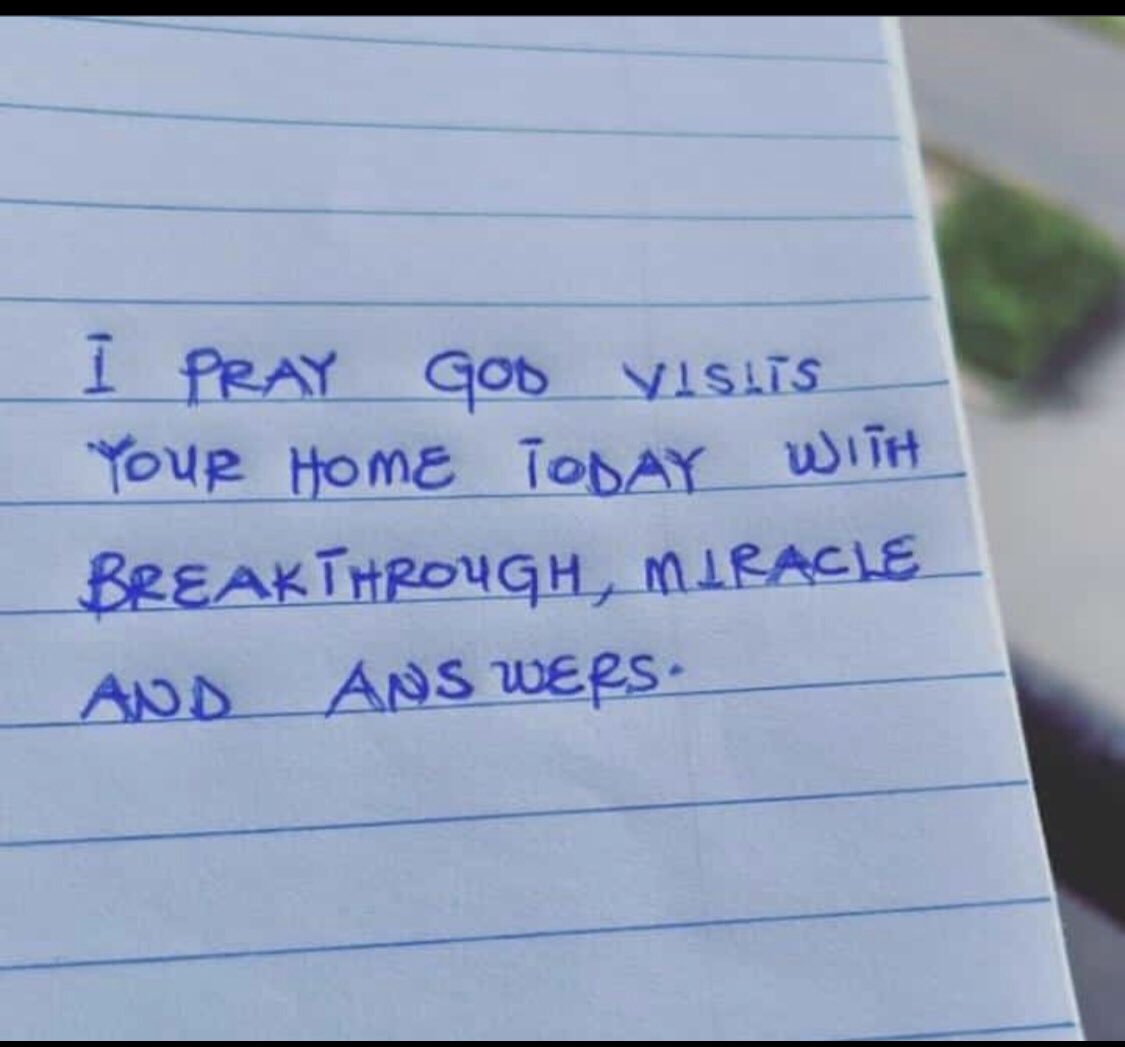 I PRAY GOD VISITS
YOUR HOME TODAY WITH
BREAKTHROUGH, MIRACLE
AND ANSWERS.